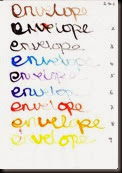 envelope
envelope 2
envelope 3
envelope 4
envelope 5
envelope 6
envelope 7
envelope 8
envelope 9